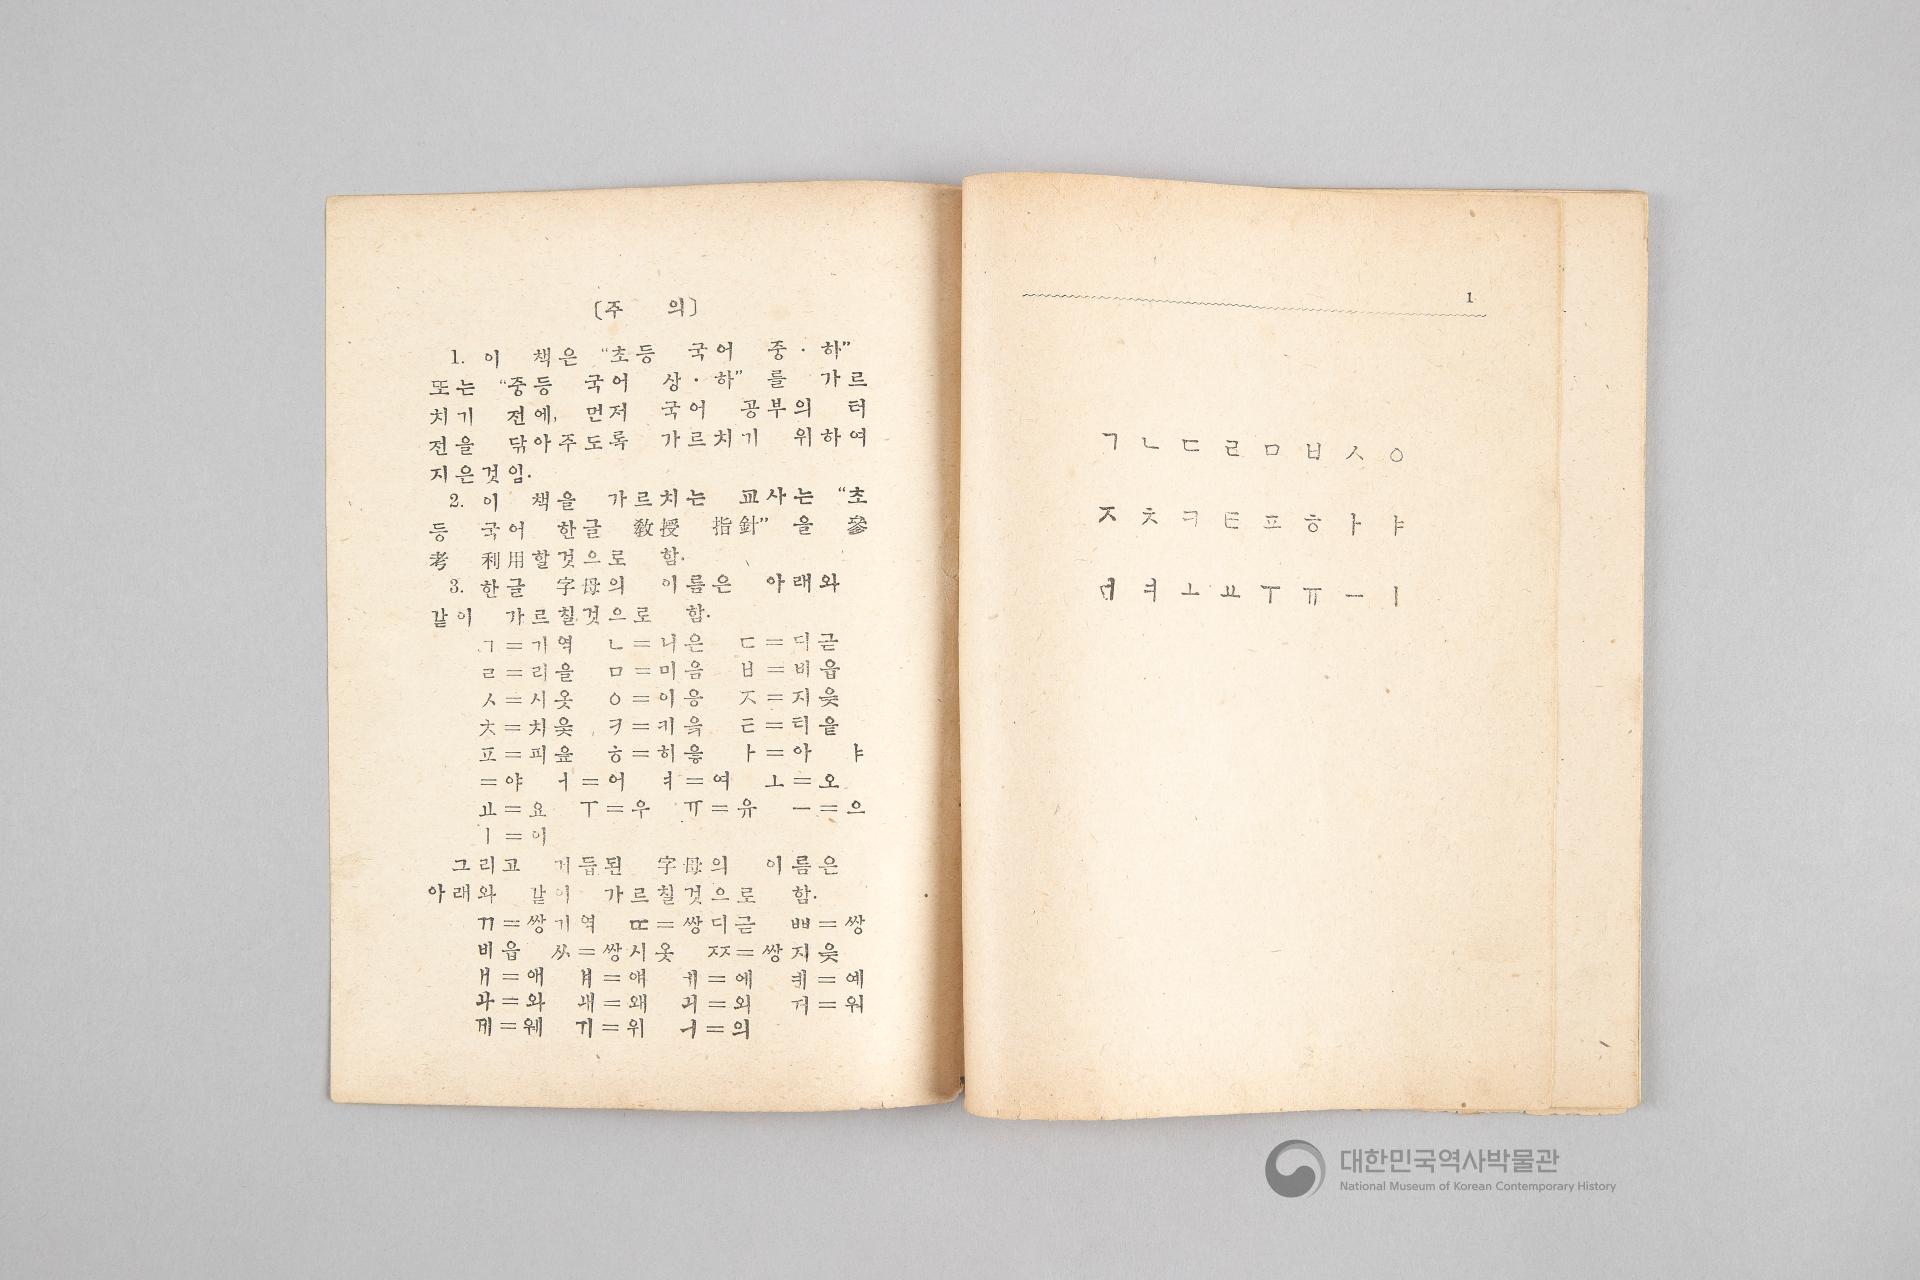 〔주 의〕
1. 이 책은 “초등 국어 중·하”
또는 “중등 국어 상·하” 를 가르
치기 전에, 먼저 국어 공부의 터
전을 닦아주도록 가르치기 위하여
지은것임.
2. 이 책을 가르치는 교사는 “초
등 국어 한글 敎授 指針” 을 參
考 利用할것으로 함.
3. 한글 字母의 이름은 아래와
같이 가르칠것으로 함.
ㄱ=기역 ㄴ=니은 ㄷ=디귿
ㄹ=리을 ㅁ=미음 ㅂ=비읍
ㅅ=시옷 ㅇ=이응 ㅈ=지읒
ㅊ=치읓 ㅋ=키윽 ㅌ=티읕
ㅍ=피읖 ㅎ=히읗 ㅏ=아 ㅑ
=야 ㅓ=어 ㅕ=여 ㅗ=오
ㅛ=요 ㅜ=우 ㅠ=유 ㅡ=으
ㅣ=이
그리고 거듭된 字母의 이름은
아래와 같이 가르칠것으로 함.
ㄲ=쌍기역 ㄸ=쌍디귿 ㅃ=쌍
비읍 ㅆ=쌍시옷 ㅉ=쌍지읒
ㅐ=애 ㅒ=얘 ㅔ=에 ㅖ=예
ㅘ=와 ㅙ=왜 ㅚ=외 ㅝ=워
ㅞ=웨 ㅟ=위 ㅢ=의
1
ㄱ ㄴ ㄷ ㄹ ㅁ ㅂ ㅅ ㅇ
ㅈ ㅊ ㅋ ㅌ ㅍ ㅎ ㅏ ㅑ
ㅓ ㅕ ㅗ ㅛ ㅜ ㅠ ㅡ ㅣ
대한민국역사박물관
National Museum of Korean Contemporary History